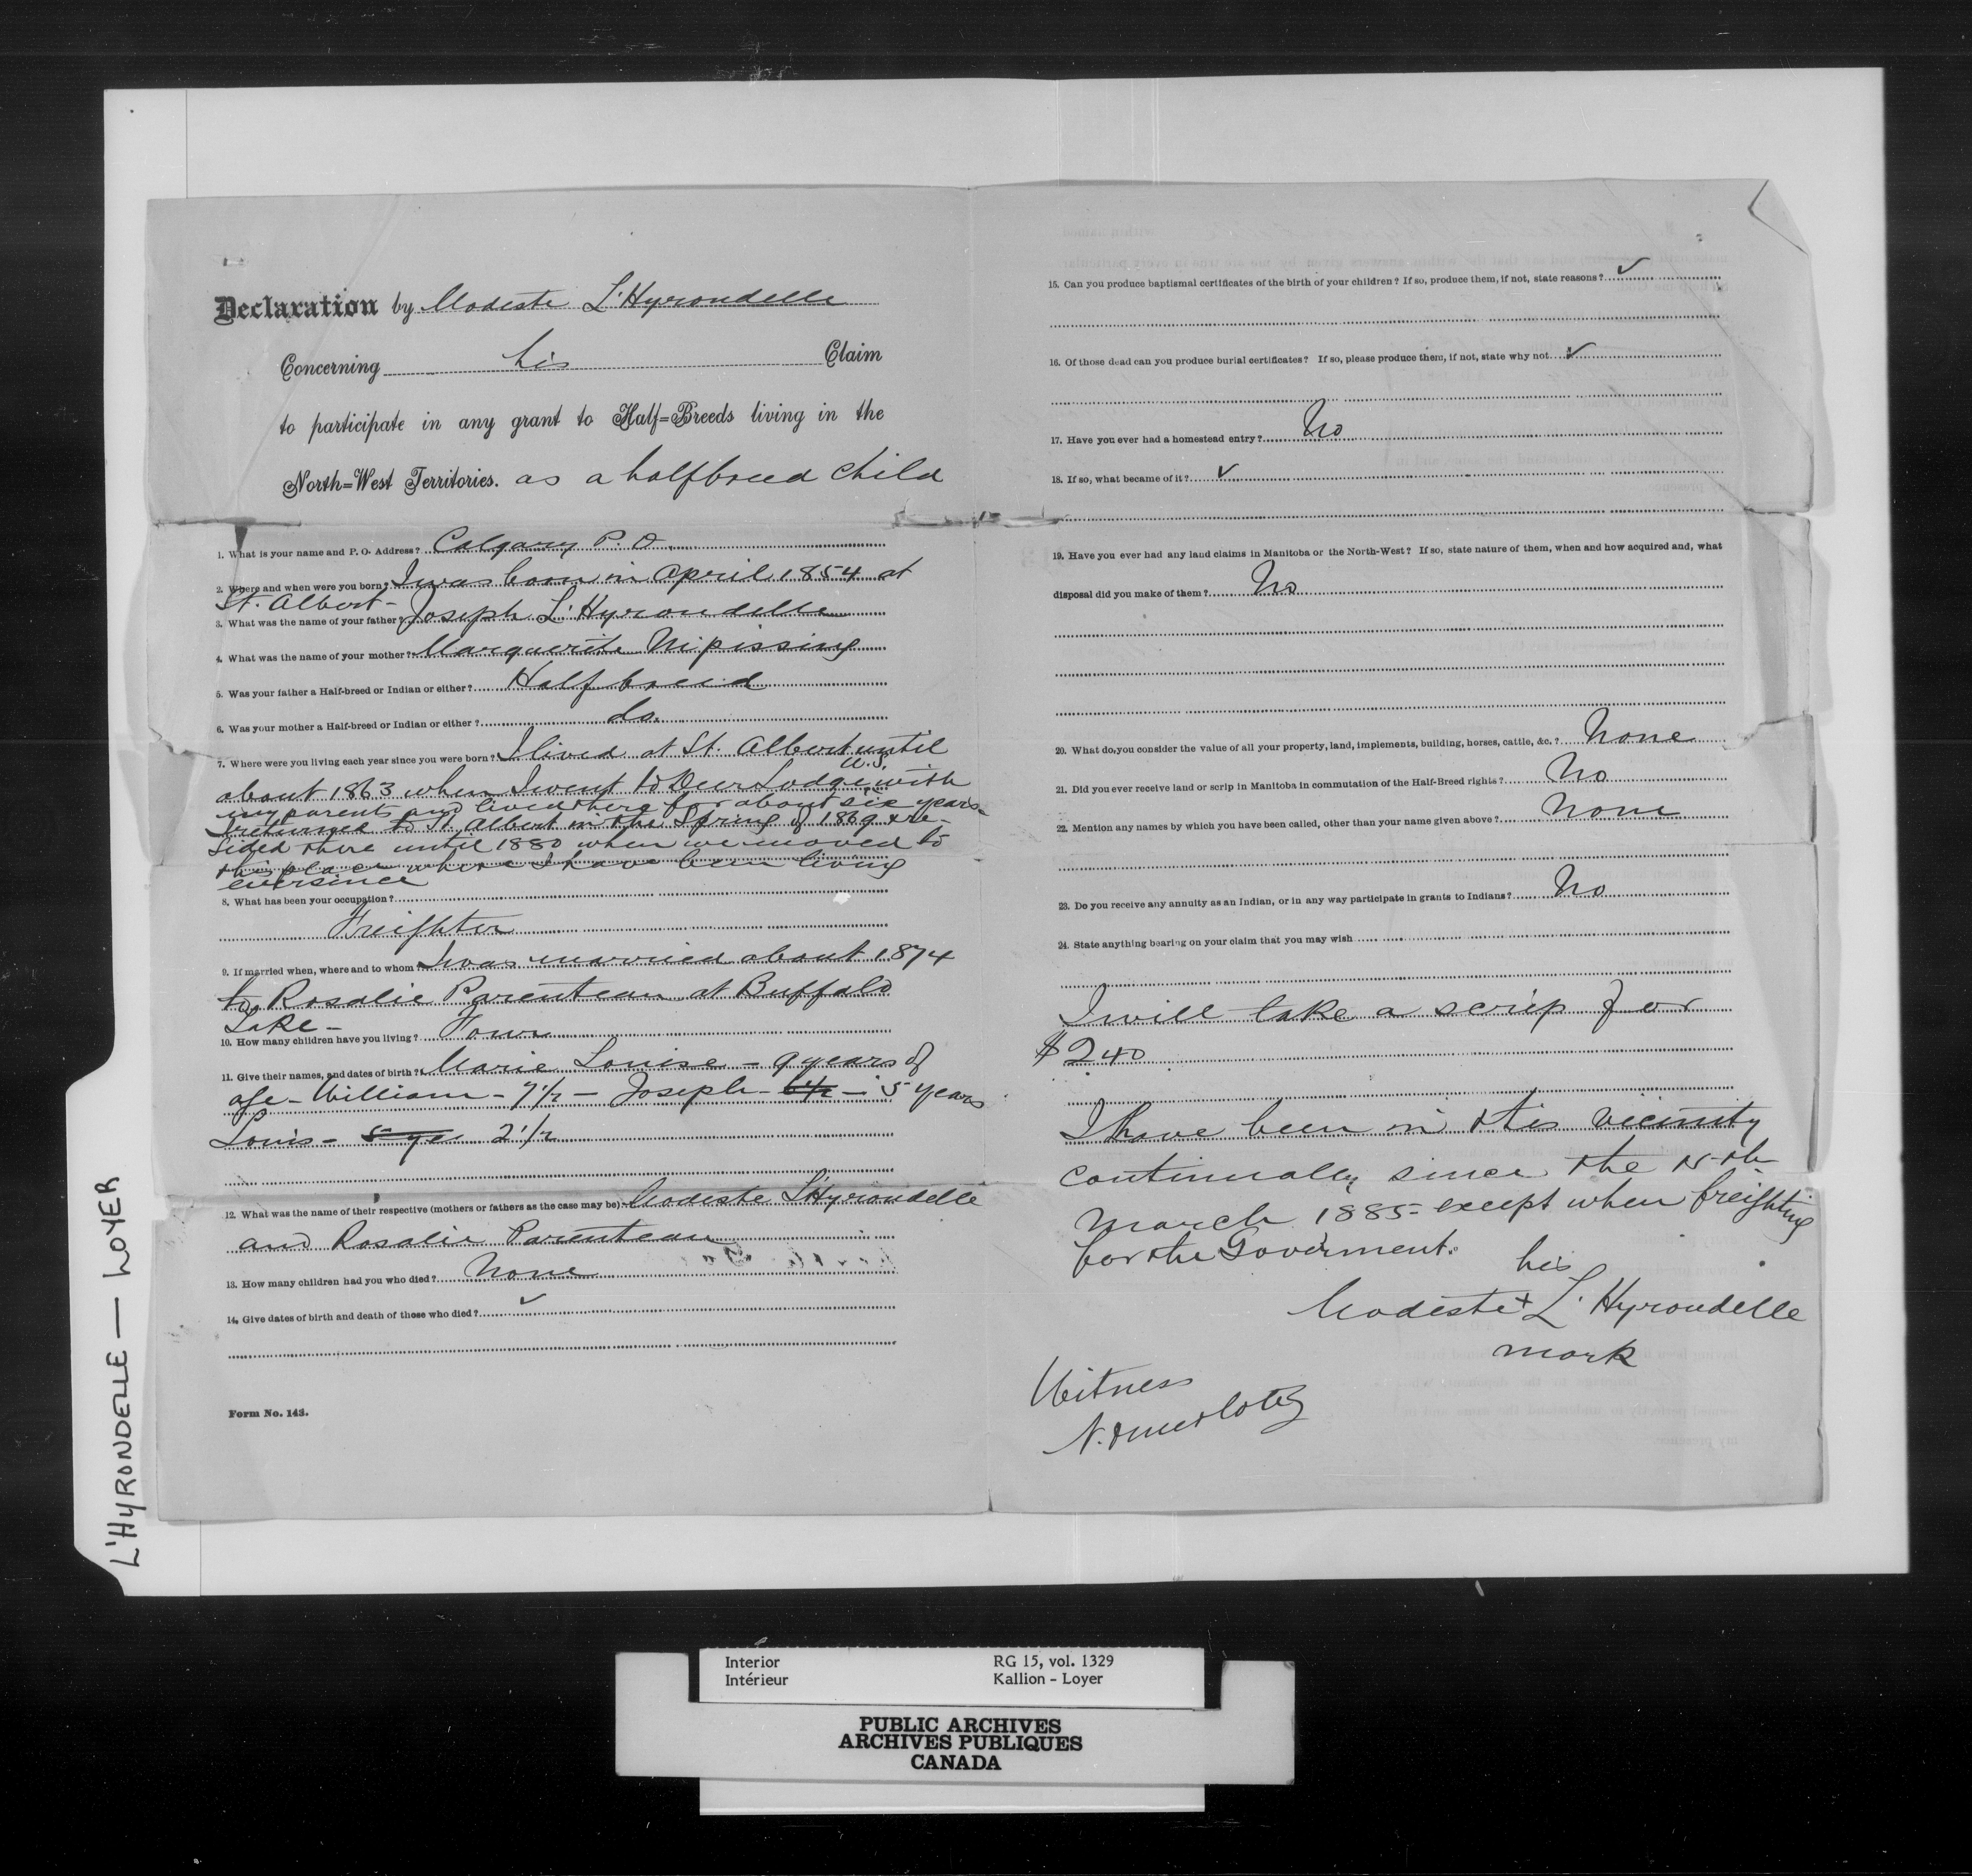 Declaration by Modeste L'Hyrondelle
Concerning his Claim
to participate in any grant to Half=Breeds living in the
North=West Territories. as a halfbreed child
1. What is your name and P. O. Address? Calgary P. O.
2. Where and when were you born? I was born in April 1854 at
St. Albert-
3. What was the name of your father? Joseph L'Hyrondelle
4. What was the name of your mother? Marguerite Nipissing
5. Was your father a Half-breed or Indian or either? Halfbreed
6. Was your mother a Half-breed or Indian or either? do.
7. Where were you living each year since you were born? I lived at St. Albert until
about 1863 when I went to Deer Lodge U.S. with
my parents and lived there for about six years.
I returned to St. Albert in the Spring of 1869 & re-
sided there until 1880 when we moved to
this place where I have been living
ever since
8. What has been your occupation?
Freighter
9. If married when, where and to whom? I was married about 1874
to Rosalie Parenteau at Buffalo
Lake-
10. How many children have you living? Four
11. Give their names, and dates of birth? Marie Louise - 9 years of
age - William - 7 1/2 - Joseph - 6 1/2 - 5 years
Louis - 5 ye 2 1/2
12. What was the name of their respective (mothers or fathers as the case may be) Modeste L'Hyrondelle
and Rosalie Parenteau
13. How many children had you who died? None
14. Give dates of birth and death of those who died? ✓
Form No. 143.
15. Can you produce baptismal certificates of the birth of your children? If so, produce them, if not, state reasons? ✓
16. Of those dead can you produce burial certificates? If so, please produce them, if not, state why not ✓
17. Have you ever had a homestead entry? No
18. If so, what became of it? ✓
19. Have you ever had any land claims in Manitoba or the North-West? If so, state nature of them, when and how acquired and, what
disposal did you make of them? No
20. What do you consider the value of all your property, land, implements, building, horses, cattle, &c.? None
21. Did you ever receive land or scrip in Manitoba in commutation of the Half-Breed rights? No
22. Mention any names by which you have been called, other than your name given above? None
23. Do you receive any annuity as an Indian, or in any way participate in grants to Indians? No
24. State anything bearing on your claim that you may wish
I will take a scrip for
$240
I have been in this vicinity
continually since the
March 1885 - except when freighting
for the Goverment.
his
Modeste + L'Hyrondelle
mark
Witness
L'HYRONDELLE — LOYER
Interior RG 15, vol. 1329
Intérieur Kallion - Loyer
PUBLIC ARCHIVES
ARCHIVES PUBLIQUES
CANADA